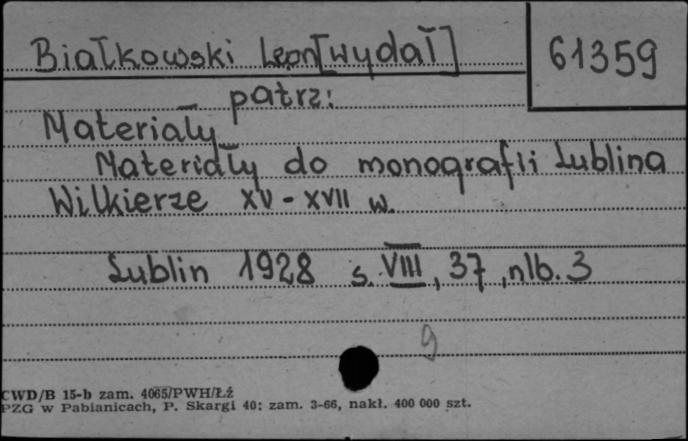 Białkowski Leon [wydał]
61359
patrz:
Materiały
Materiały do monografii Lublina
Wilkierze XV - XVII w.
Lublin 1928 s. VIII, 37, nlb. 3
9
CWD/B 15-b zam. 4065/PWH/Łź
PZG w Pabianicach, P. Skargi 40; zam. 3-66, nakł. 400 000 szt.